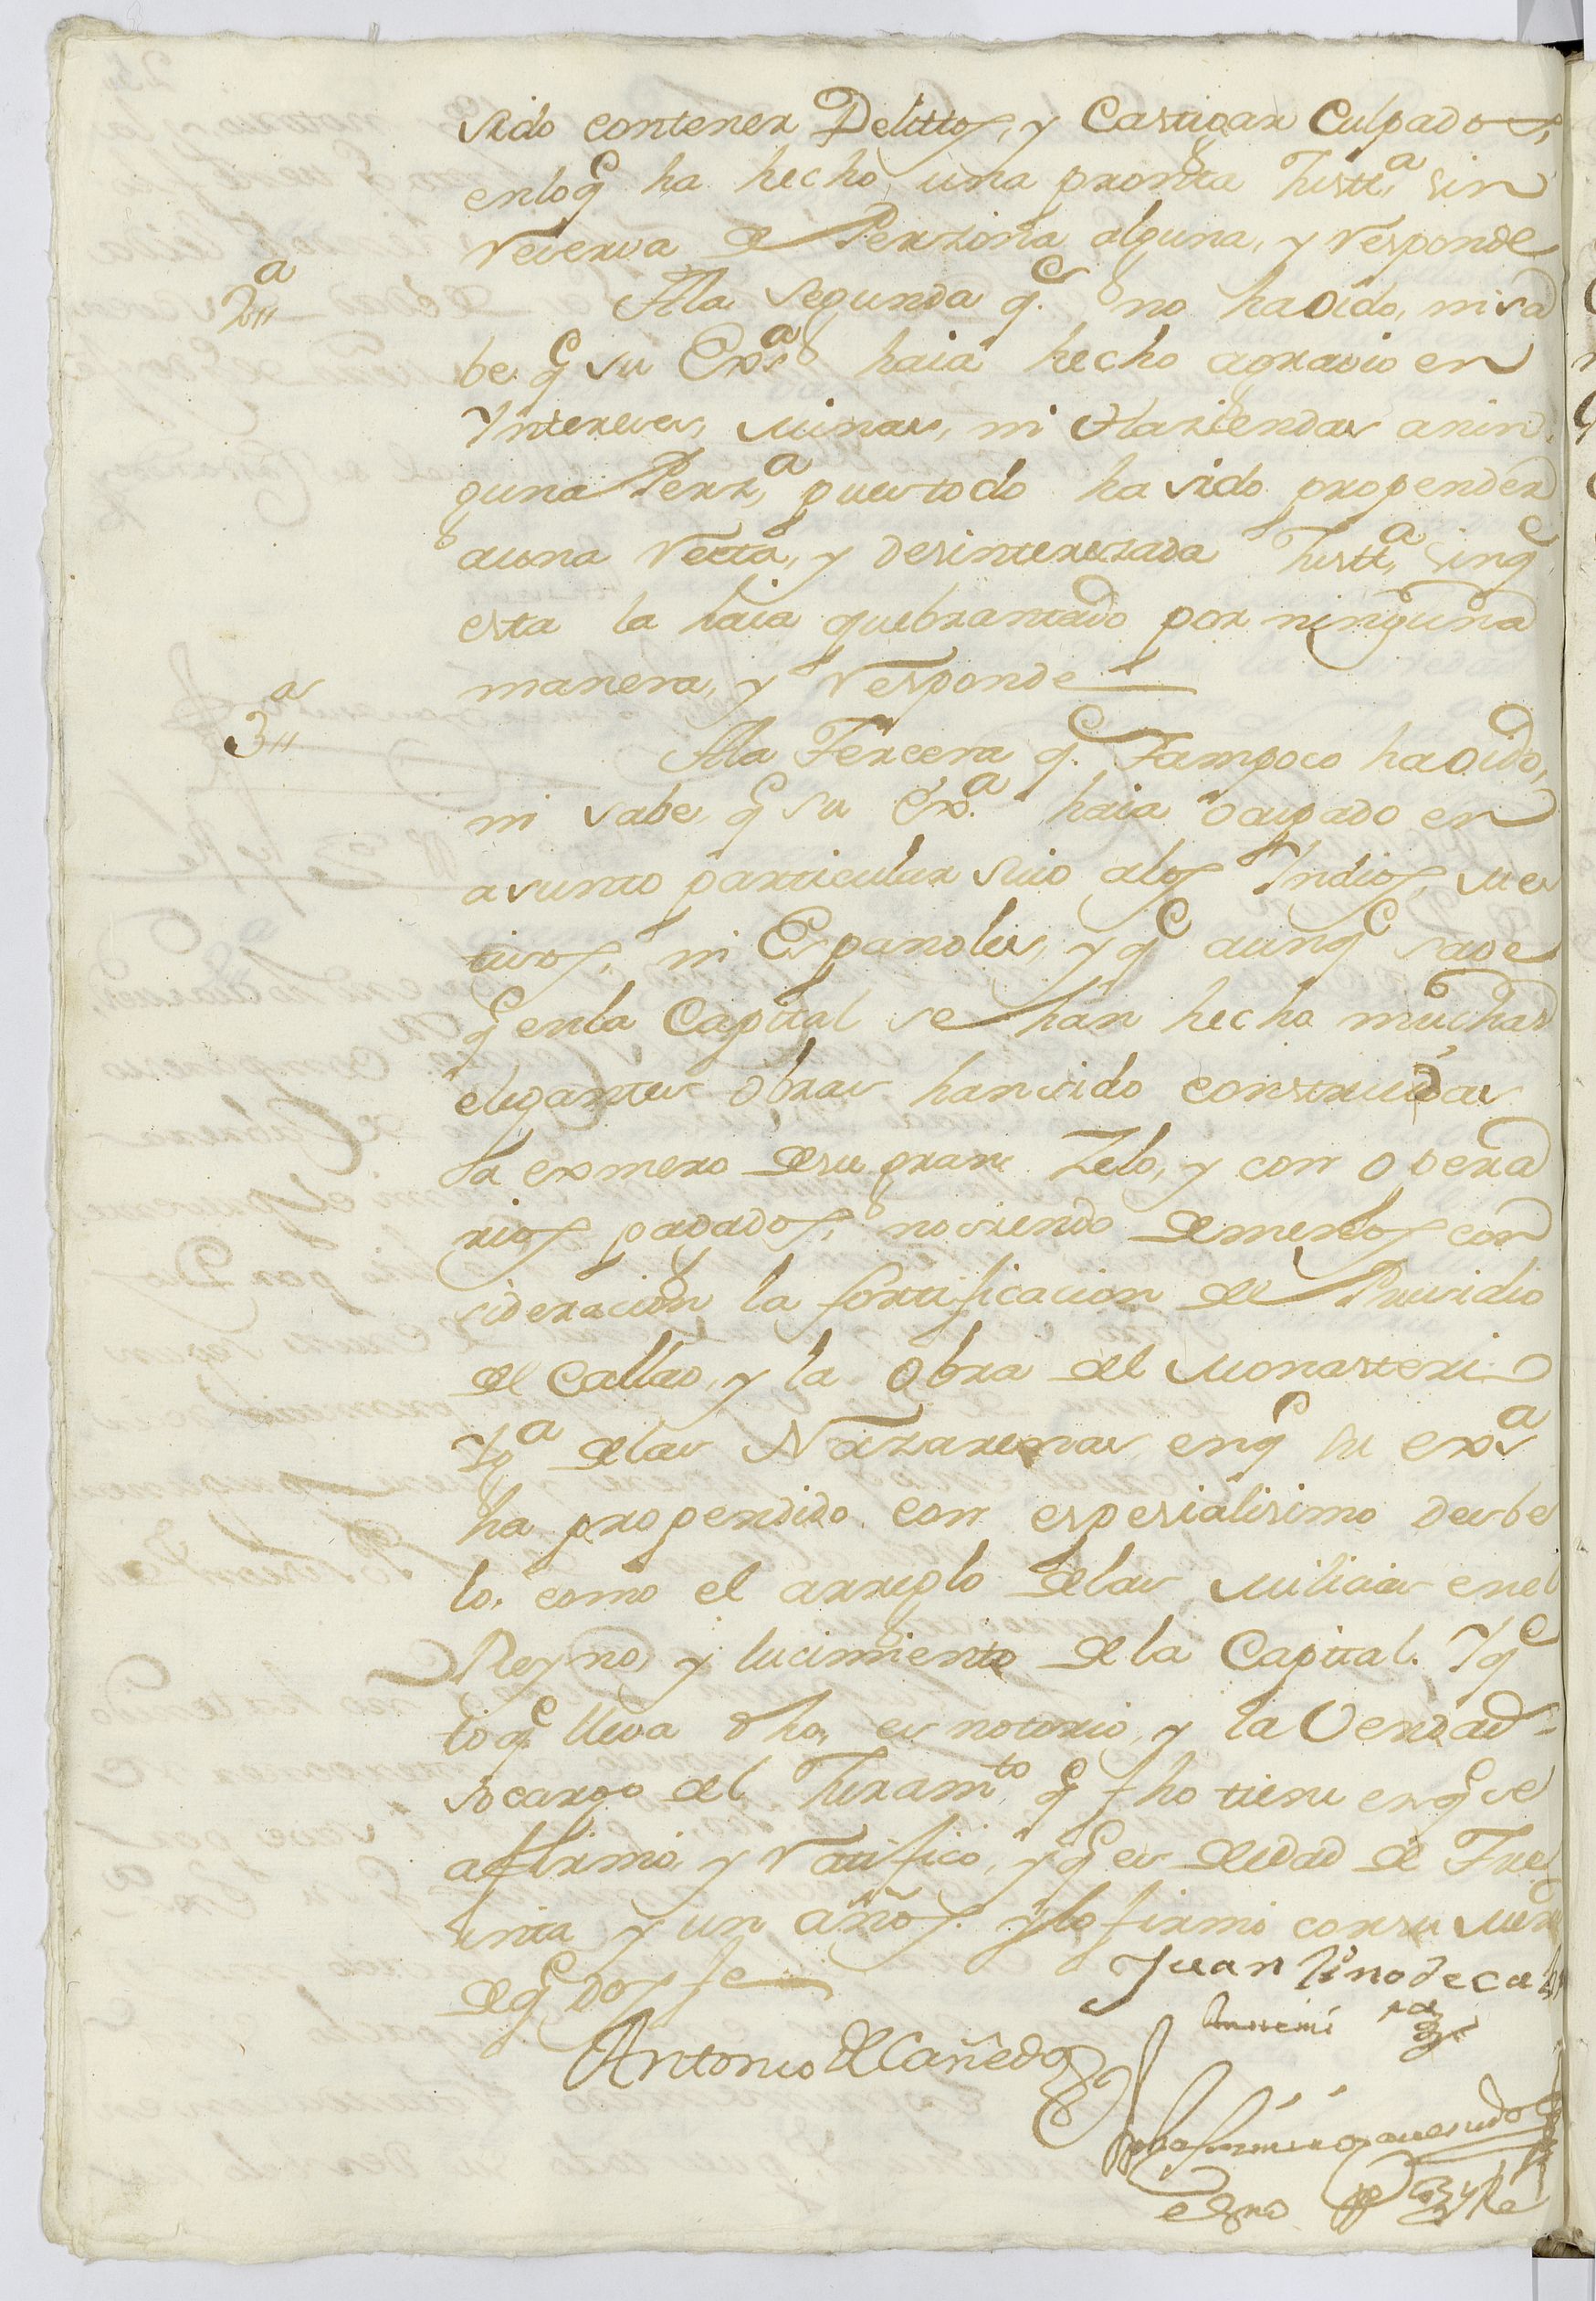 sido contener Delittos, y Castigar Culpados,
enloq̃ ha hecho una pronta Justt.ª sin
reserva de Perzona alguna, y responde
2.ª Ala segunda q.e no haoido, nisa
be q̃ su Exª haia hecho agravio en
Intereses, minas, ni Haziendas anin
guna Perz.ª puestodo hasido propender
auna Recta, y desinterezada Justt.ª sinq.e
esta la haia quebrantado por ninguna
manera, y responde
3.ª Ala Tercera q.e Tampoco haoido,
ni sabe, q̃ su Exª haia ocupado en
asunto particular suio alos Indios, mes
tisos, ni Espanoles, y q.e aunq.e save
q̃ enla Capital se han hecho muchas
elegantes obras hansido construidas
a exmero desu gran Zelo, y con opera
rios pagados, nosiendo demenos con
sideracion la fortificacion del Presidio
del Callao, y la Obra del Monasterio
Yg.ª delas Nazarenas enq.e su exª
ha propendido con espesialisimo desbe
lo, como el arreglo delas Milicias enel
Reyno, y lucimiento de la Capital. Yq.e
loq.e lleva dho, es notorio, y la Verdad
socargo del Juramto q̃ fho tiene enq̃ se
affirmó, y ratificó, yq̃ es deedad de Tre
inta y un años. ylo firmó consu Mrd
deq.e doy fe
Juan Lino de Cab
Antemi
Antonio de Cañedo
esno